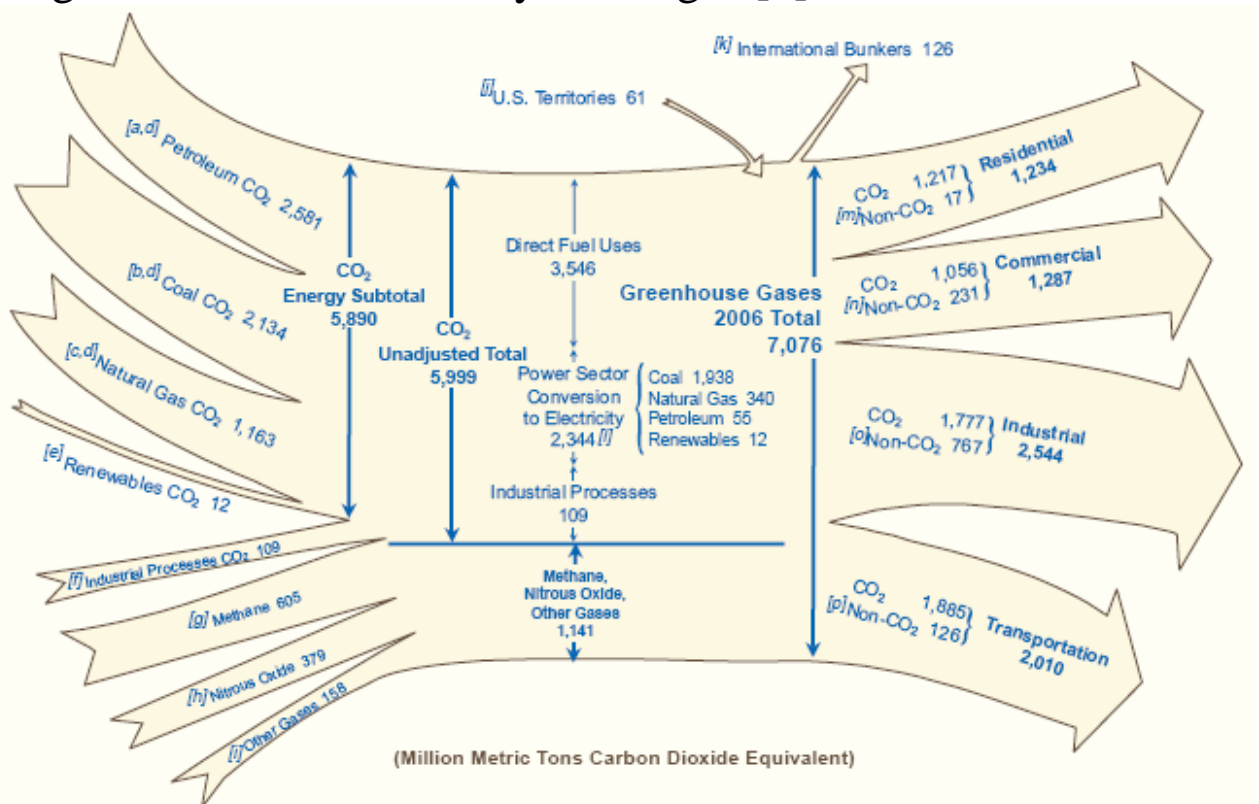 [k] International Bunkers 126
[j]U.S. Territories 61
[a,d] Petroleum CO₂ 2,581
[b,d] Coal CO₂ 2,134
[c,d]Natural Gas CO₂ 1,163
[e] Renewables CO₂ 12
[f] Industrial Processes CO₂ 109
[g] Methane 605
[h] Nitrous Oxide 379
[i] Other Gases 158
CO₂
Energy Subtotal
5,890
CO₂
Unadjusted Total
5,999
Direct Fuel Uses
3,546
Power Sector
Conversion
to Electricity
2,344[l]
Coal 1,938
Natural Gas 340
Petroleum 55
Renewables 12
Industrial Processes
109
Methane,
Nitrous Oxide,
Other Gases
1,141
Greenhouse Gases
2006 Total
7,076
CO₂ 1,217
[m]Non-CO₂ 17
Residential
1,234
CO₂ 1,056
[n]Non-CO₂ 231
Commercial
1,287
CO₂ 1,777
[o]Non-CO₂ 767
Industrial
2,544
CO₂ 1,885
[p]Non-CO₂ 126
Transportation
2,010
(Million Metric Tons Carbon Dioxide Equivalent)